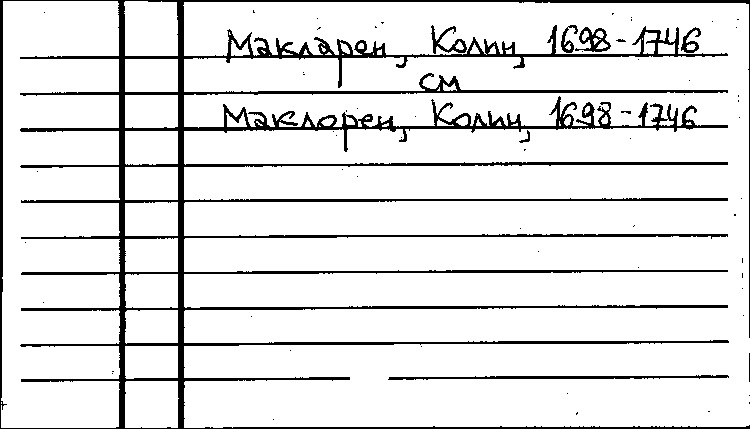 Макларен, Колин, 1698-1746
см
Маклорен, Колин, 1698-1746